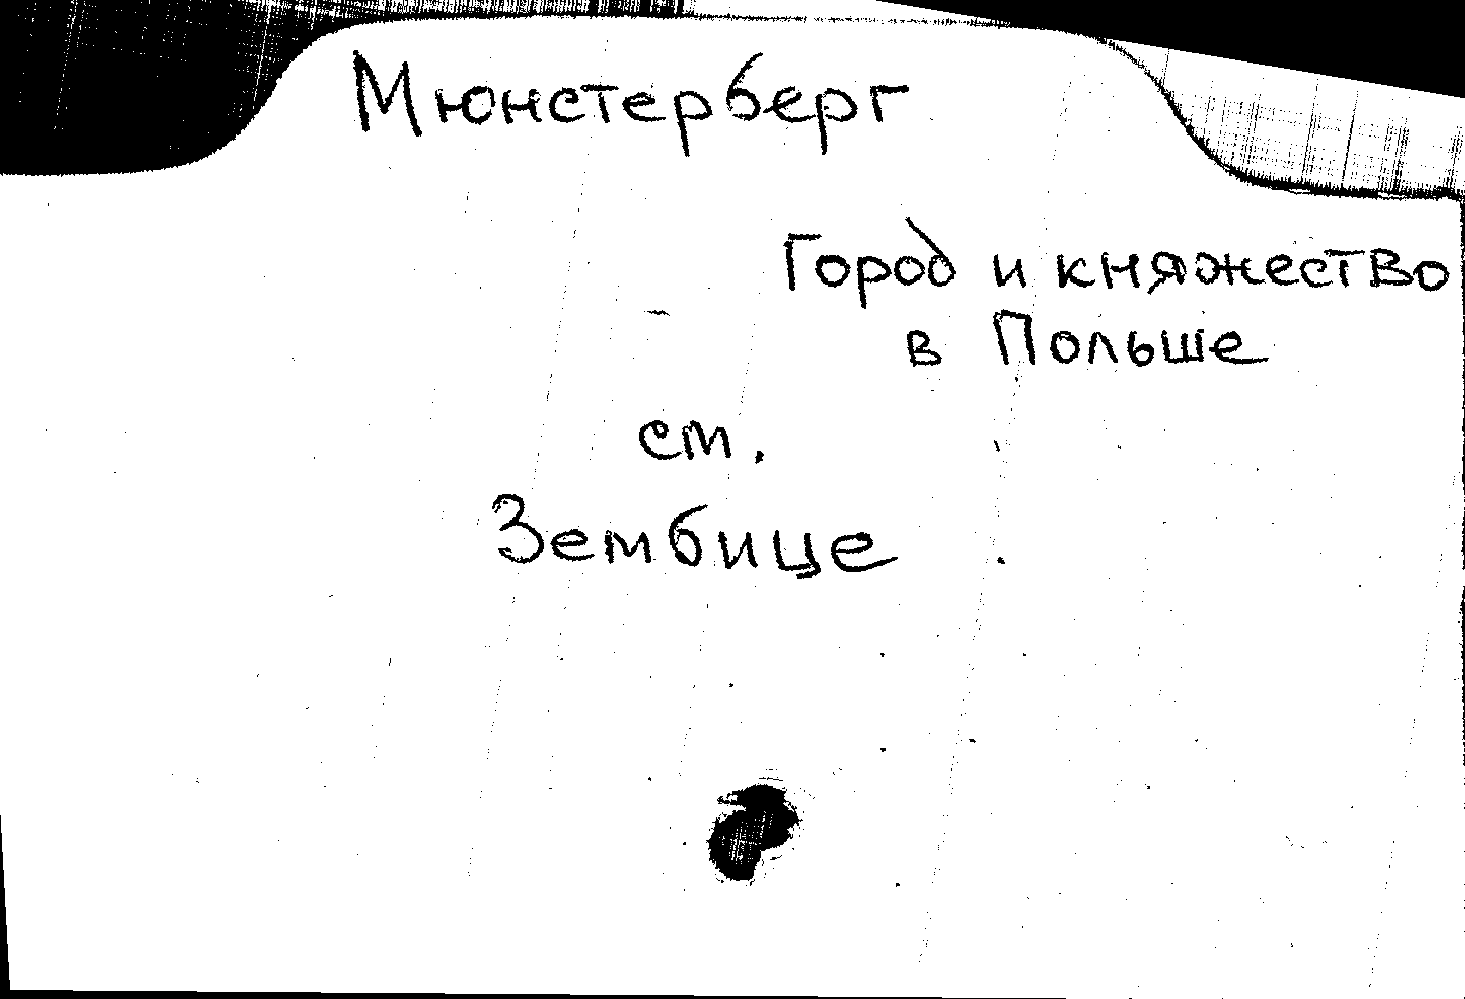 Мюнстерберг
Город и княжество
в Польше
см.
Зембице